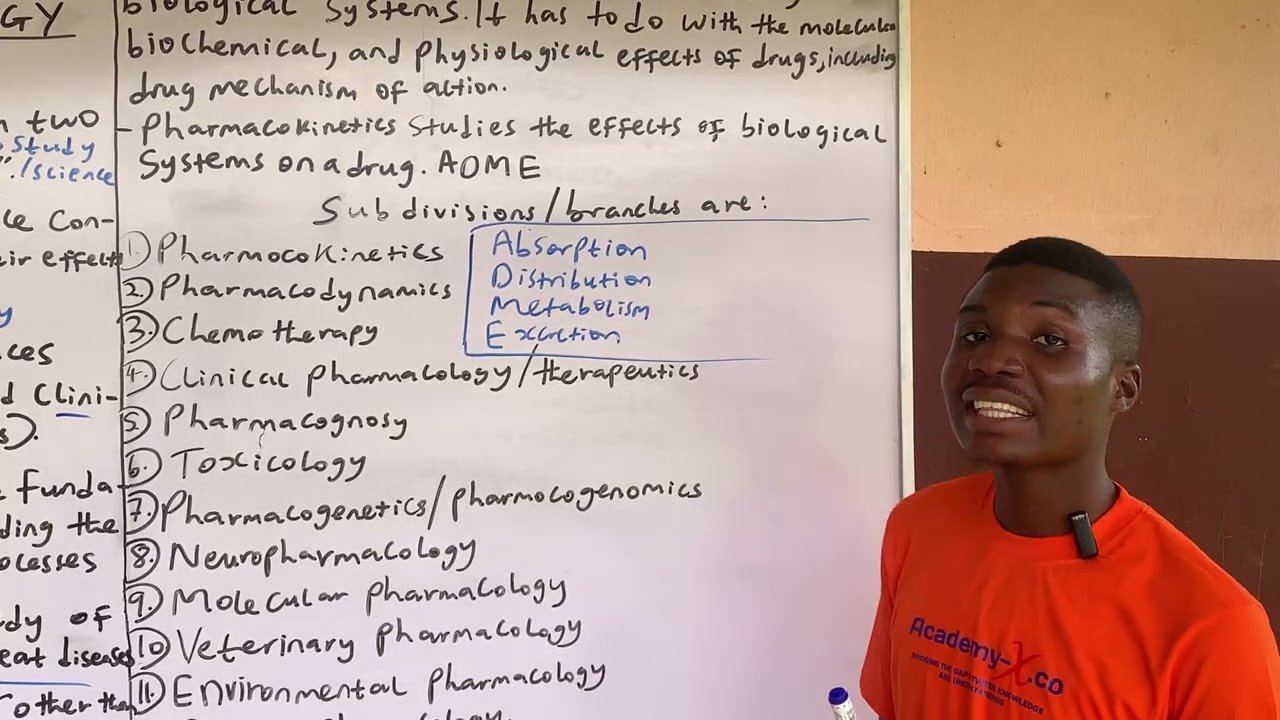 GY
n two
Study
"./science
ce Con-
eir effects
y
ces
d Clini-
s).
Funda-
ding the
ocesses
dy of
eat diseases
r other than
biological Systems. It has to do with the molecular
biochemical, and physiological effects of drugs, including
drug mechanism of action.
- Pharmacokinetics Studies the effects of biological
Systems on a drug. ADME
Subdivisions/branches are:
1. Pharmocokinetics
2. Pharmacodynamics
3. Chemotherapy
4. Clinical pharmacology/therapeutics
5. Pharmacognosy
6. Toxicology
7. Pharmacogenetics/pharmocogenomics
8. Neuropharmacology
9. Molecular pharmacology
10 Veterinary pharmacology
11. Environmental pharmacology
Absorption
Distribution
Metabolism
Excretion
Academy-X.co
BRIDGING THE GAP BETWEEN KNOWLEDGE
AND UNDERSTANDING